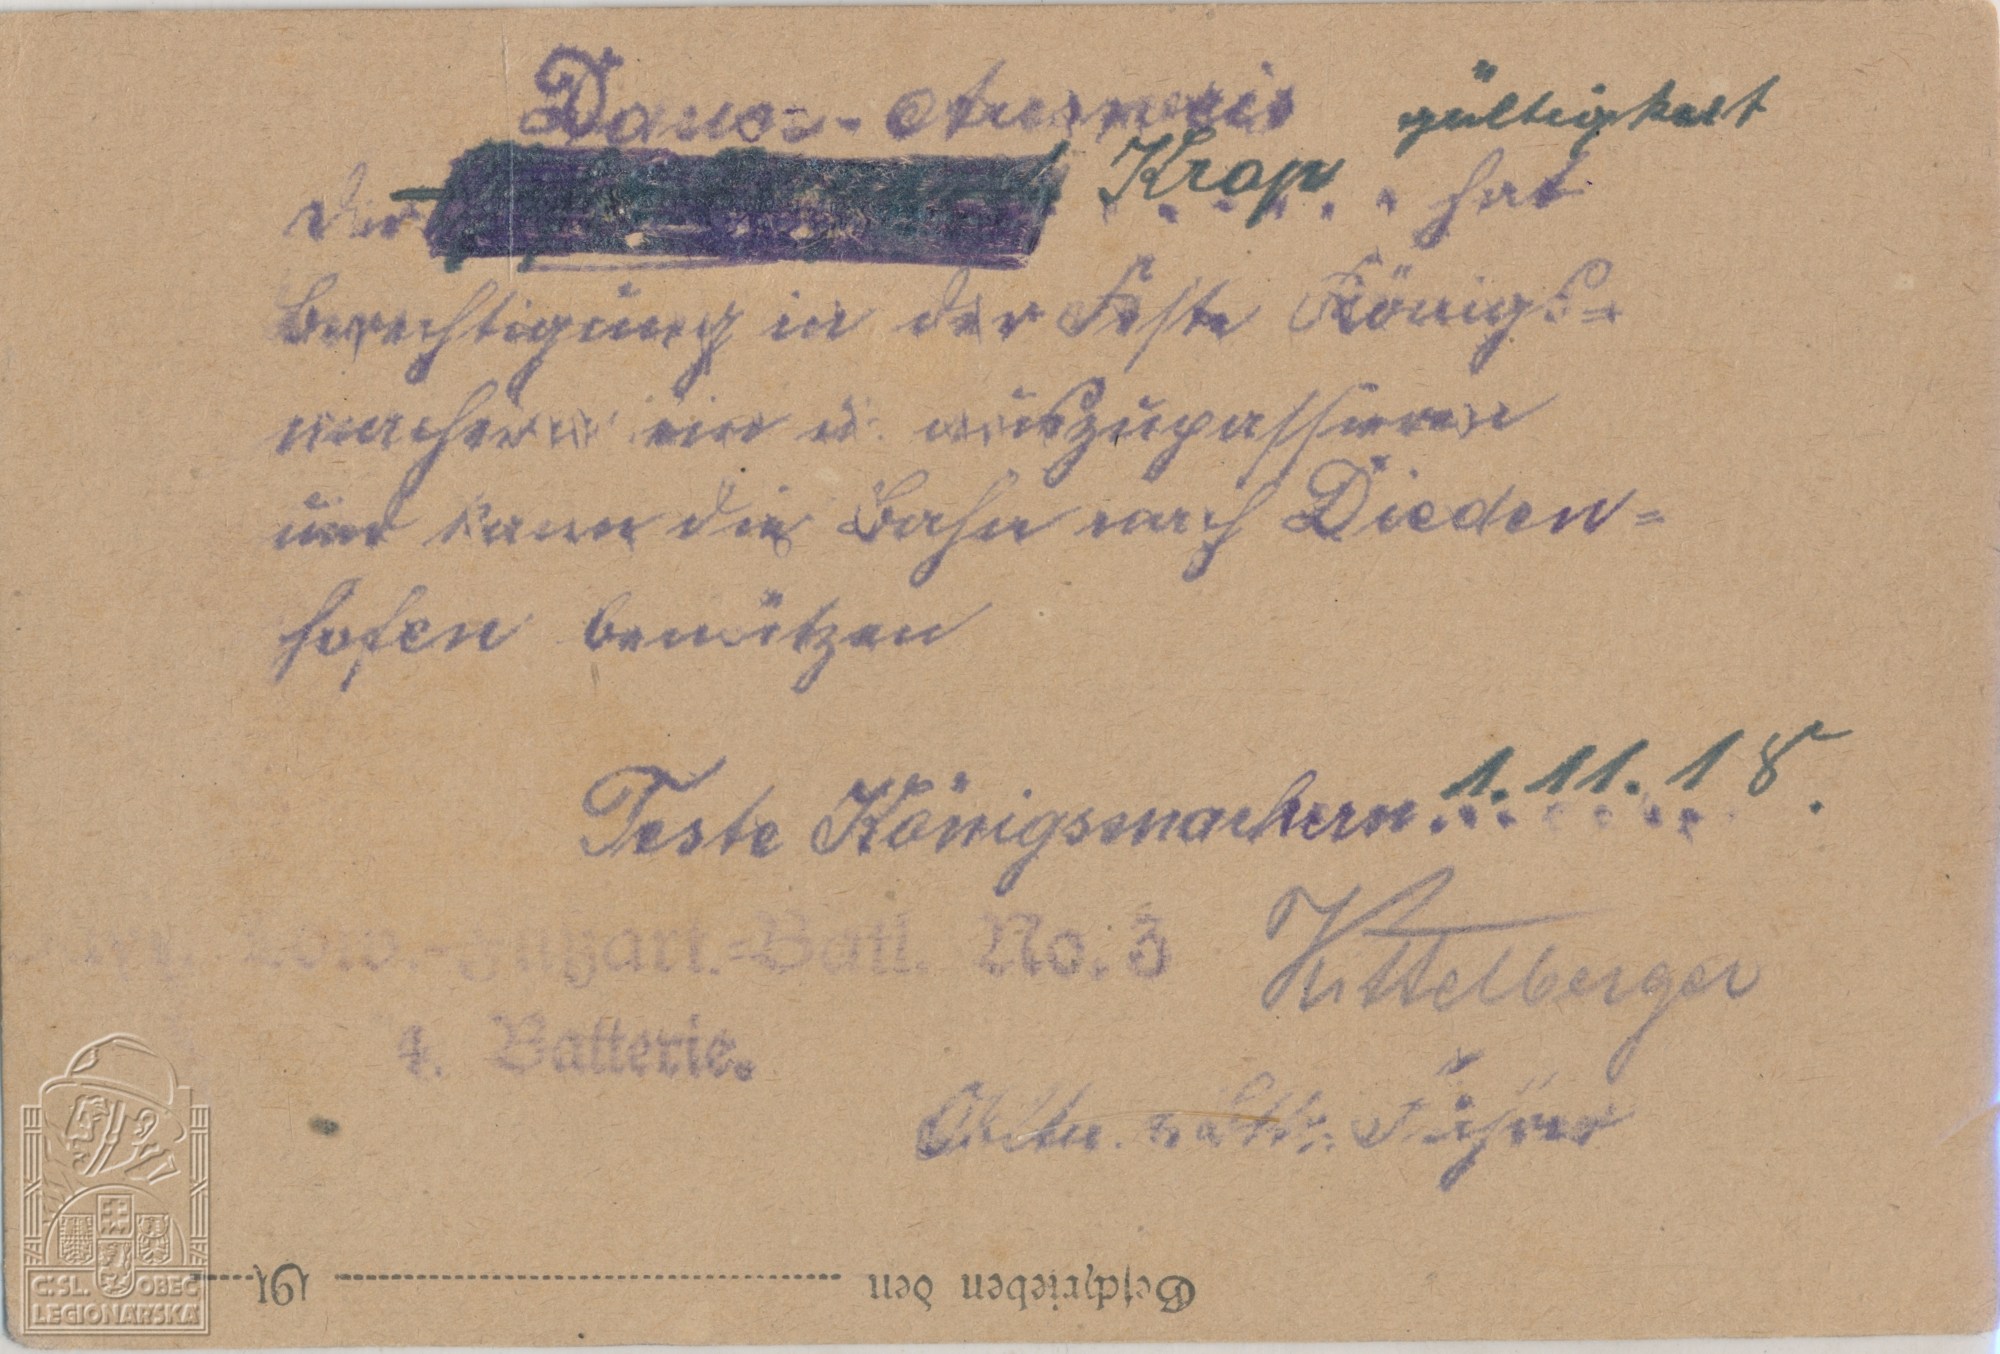 Dauer-Ausweis gültigkeit
Der Krop hat
Berechtigung in der Feste Königs=
machern ein u. auszupassieren
und kann die Bahn nach Dieden=
hofen benützen
Feste Königsmachern. 1.11.18.
-Batl. No. 3
4. Batterie.
Kittelberger
Führer
Geschrieben den 191
Č.SL. OBEC
LEGIONÁŘSKÁ